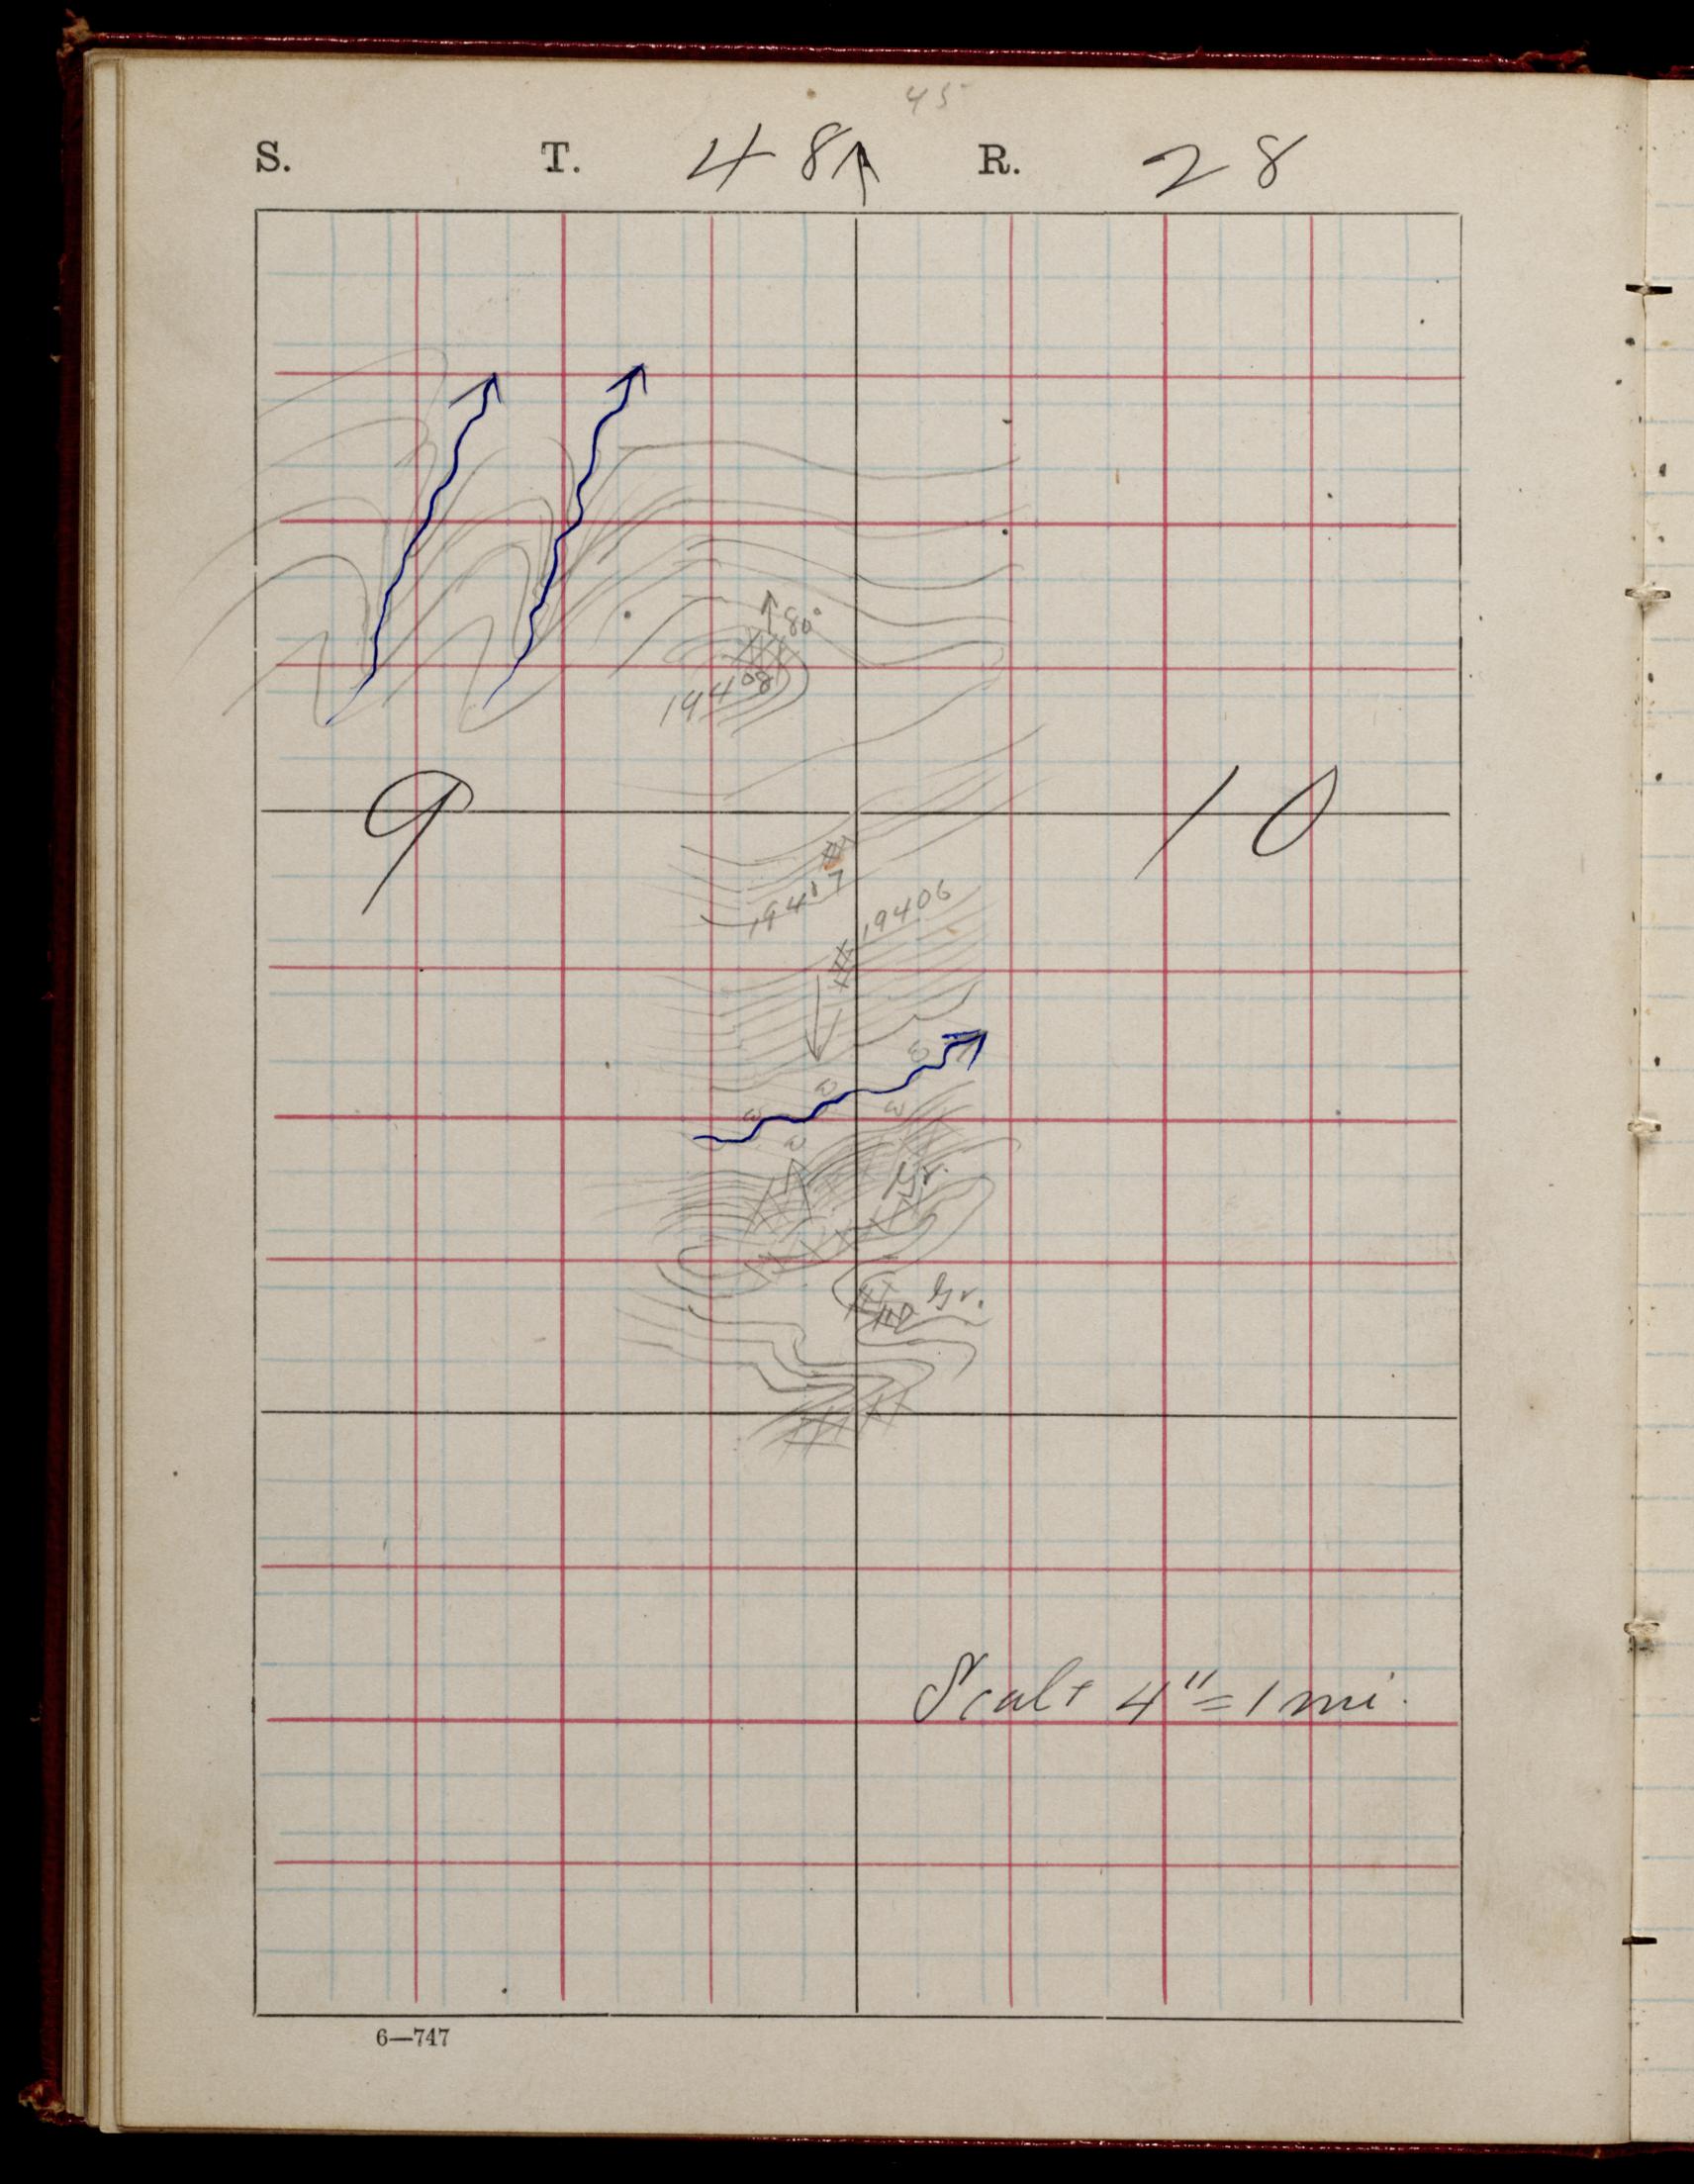 45
S. T. 48 R. 28
80°
19408
9 10
19407
19406
w
w
w
w
Gr.
Gr.
Scale 4" = 1 mi.
6—747